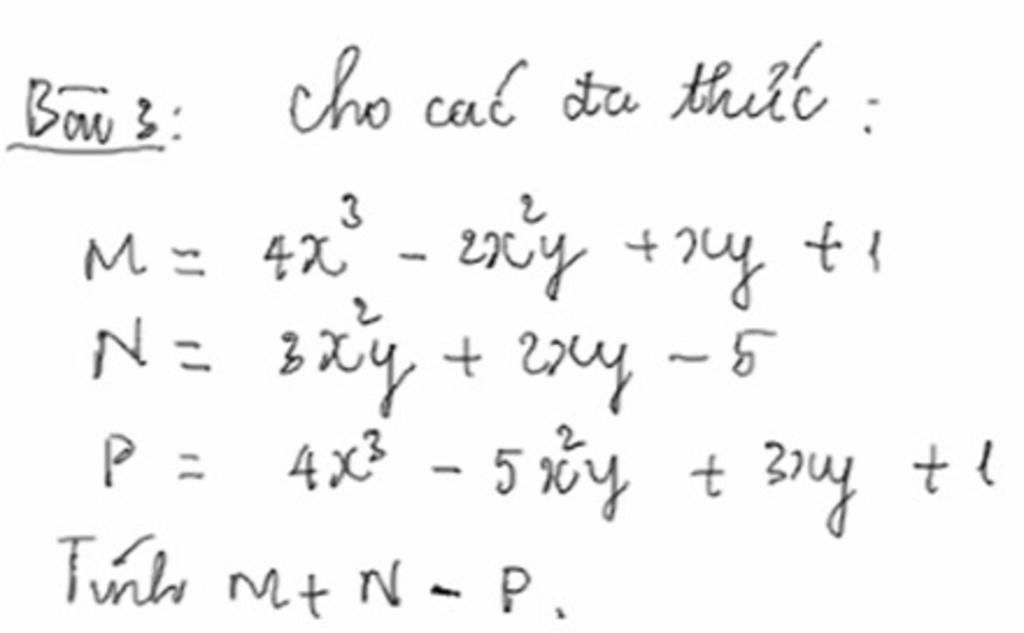 Bài 3: Cho các đa thức :
M = 4x³ - 2x²y + xy + 1
N = 3x²y + 2xy - 5
P = 4x³ - 5x²y + 3xy + 1
Tính M + N - P.